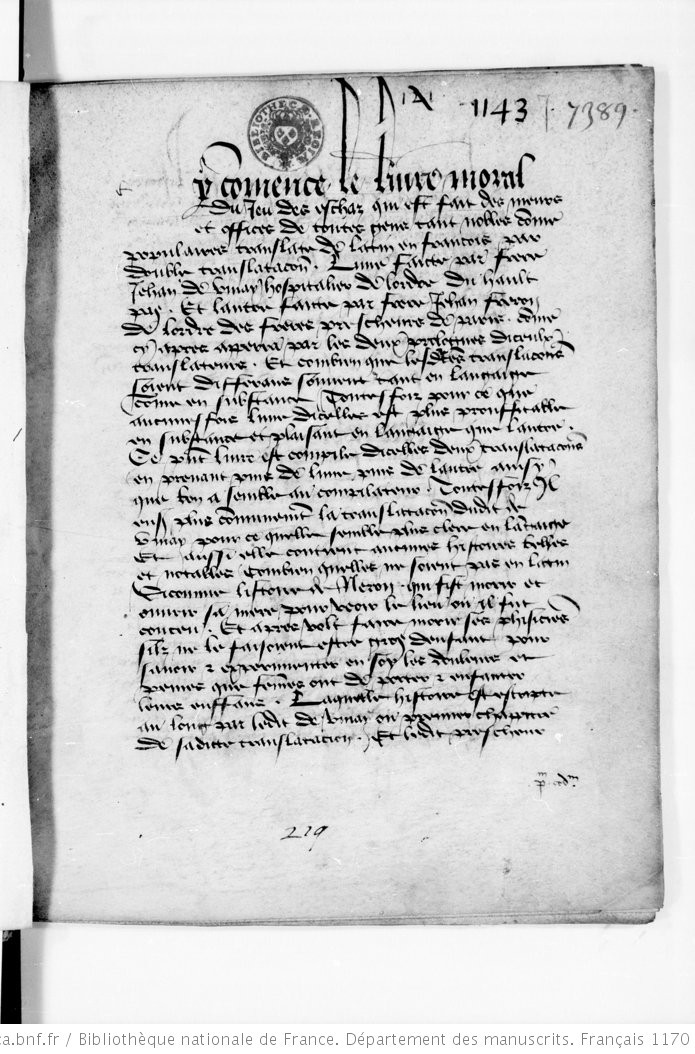 1143 7389.
BIBLIOTHECÆ REGIÆ
y comence le livre moral
du Jeu des eschaz qui est fait des meurs
et offices de toutes gens tant nobles come
populaires translate de latin en francois par
double translatacon. Lune faicte par frere
Jehan de vinay hospitalier de lordre du hault
pas. Et lautre faicte par frere Jehan feron
de lordre des freres prescheurs de paris. come
cy apres apperra par les deux prologues diceulx
translateurs. Et combien que lesdtes translacons
soient differans souvent tant en langaige
come en substance Toutesfoiz pour ce que
aucunesfois lune dicelles est plus prouffitable
en substance et plaisant en langaige que lautre.
Ce pnt livre est compile dicelles deux translatacons
en prenant puis de lune puis de lautre ainsy
que bon a semble au compilateur. Toutesfoiz Jl
ensuit plus comunement la translatacon dudit de
vinay pour ce quelle semble plus clere en langaige
Et aussi elle contient aucunes histoires belles
et notables Combien quelles ne soient pas en latin
Sicomme listoire de Neron qui fist morir et
ouvrir sa mere pour veoir le lieu ou il fut
conceu. Et apres volt faire morir ses phisiciens
silz ne le faisoient estre gros denfant pour
savoir z experimenter en soy les douleurs et
peines que femes ont de porter z enfanter
leurs enffans. Laquelle histoire est escripte
au long par ledit de vinay ou premier chappitre
de sadicte translatacion. Et ledit prescheur
219
ca.bnf.fr / Bibliothèque nationale de France. Département des manuscrits. Français 1170